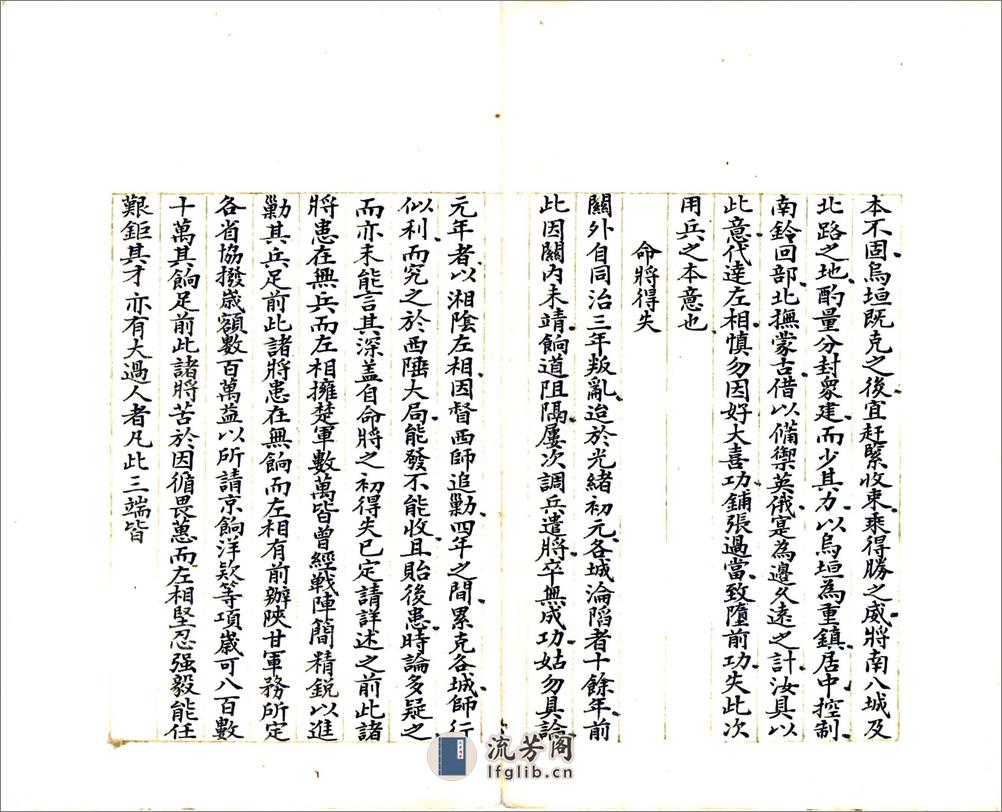 本不固烏垣既克之後宜赶緊收束乘得勝之威將南八城及
北路之地酌量分封衆建而少其力以烏垣為重鎮居中控制
南鈐回部北撫蒙古借以備禦英俄寔為邊久遠之計汝具以
此意代達左相慎勿因好大喜功鋪張過當致墮前功失此次
用兵之本意也
命將得失
關外自同治三年叛亂迨於光緒初元各城淪陷者十餘年前
此因關內未靖餉道阻隔屢次調兵遣將卒無成功姑勿具論
元年者以湘陰左相因督西師追勦四年之間累克各城師行
似利而究之於西陲大局能發不能收且貽後患時論多疑之
而亦未能言其深盖自命將之初得失已定請詳述之前此諸
將患在無兵而左相擁楚軍數萬皆曾經戰陣簡精銳以進
勦其兵足前此諸將患在無餉而左相有前辦陝甘軍務所定
各省協撥歲額數百萬益以所請京餉洋欵等項歲可八百數
十萬其餉足前此諸將苦於因循畏葸而左相堅忍强毅能任
艱鉅其才亦有大過人者凡此三端皆
流芳阁
lfglib.cn